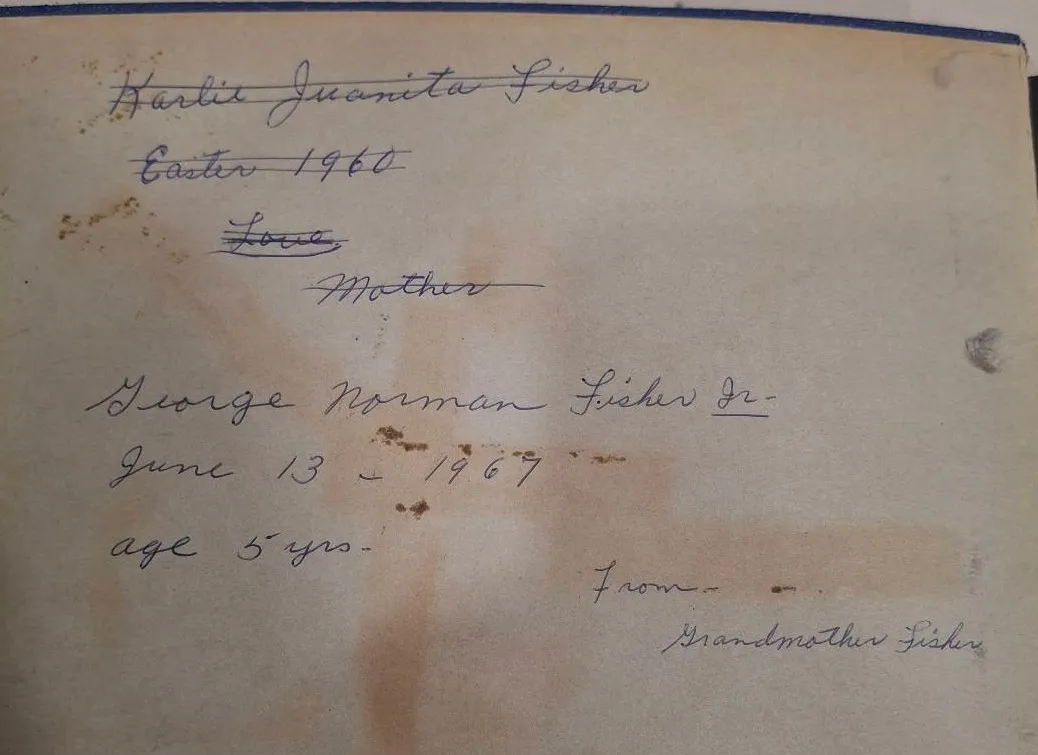 Karlie Juanita Fisher
Easter 1960
Love
Mother
George Norman Fisher Jr-
June 13 - 1967
age 5 yrs-
From-
Grandmother Fisher